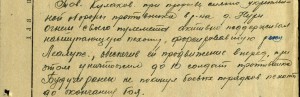 Тов. Кулаков при прорыве сильно укрепленной обороны противника
огнем своего пулемета активно поддерживал
наступающую пехоту, форсировавшую реку
обеспечил её продвижение вперед, при
этом уничтожил до 10 солдат противника.
Будучи ранен не покинул боевых порядков пехоты
до окончания боя.